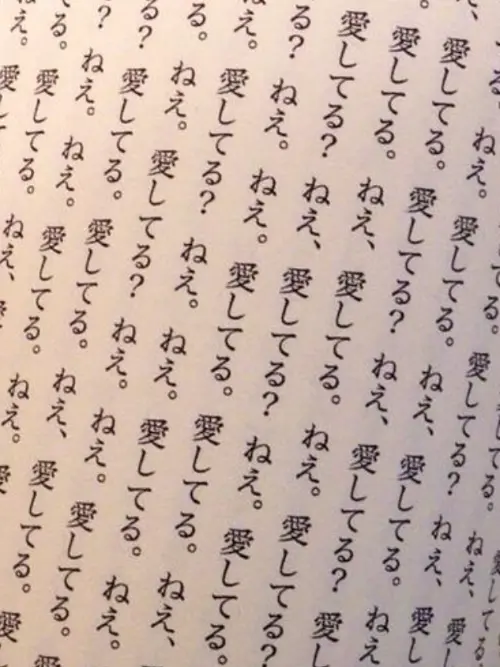 愛してる
してる。ねえ、愛
してる。愛してる？ねえ、愛し
る。ねえ。愛してる。ねえ、愛してる。ねえ
、愛してる。愛してる？ねえ、愛してる？愛し
。愛してる。ねえ、愛してる。ねえ。愛してる？
愛してる？ねえ、愛してる？ねえ。愛してる。
る？ねえ。ねえ。愛してる。愛してる。ねえ、愛
え。愛してる？ねえ。ねえ。愛してる。ねえ。
る。ねえ。愛してる？ねえ。ねえ。愛してる。愛
る？愛してる。愛してる。ねえ、愛してる。愛
？ねえ。ねえ。愛してる。ねえ。愛
る。愛してる。ねえ、
え。愛し